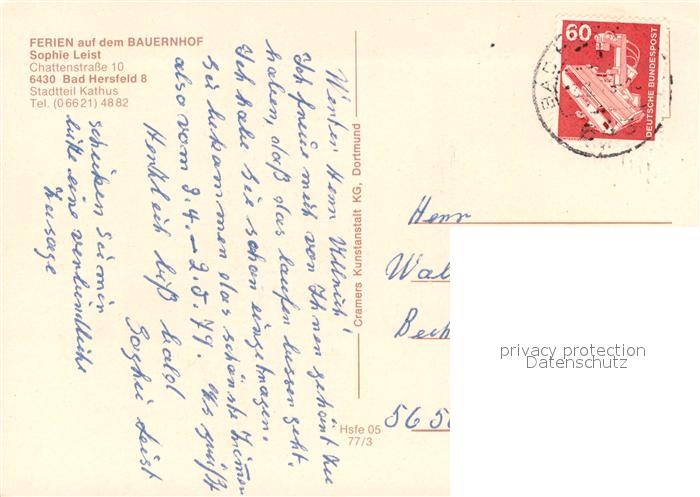 FERIEN auf dem BAUERNHOF
Sophie Leist
Chattenstraße 10
6430 Bad Hersfeld 8
Stadtteil Kathus
Tel. (06621) 4882
Werter Herr Ullrich!
Ich freue mich von Ihnen gehört zu
haben, daß das laufen lassen geht.
Ich habe sie schon eingetragen.
Sie bekommen das schönste Zimmer
also vom 9.4. – 2.5.79. Es grüßt
Herzlich biß bald
Sophie Leist
schicken Sie mir
bitte eine verbindliche
Zusage
Cramers Kunstanstalt KG, Dortmund
Hsfe 05
77/3
60
DEUTSCHE BUNDESPOST
BAD
Herr
Wal
Bech
565
privacy protection
Datenschutz